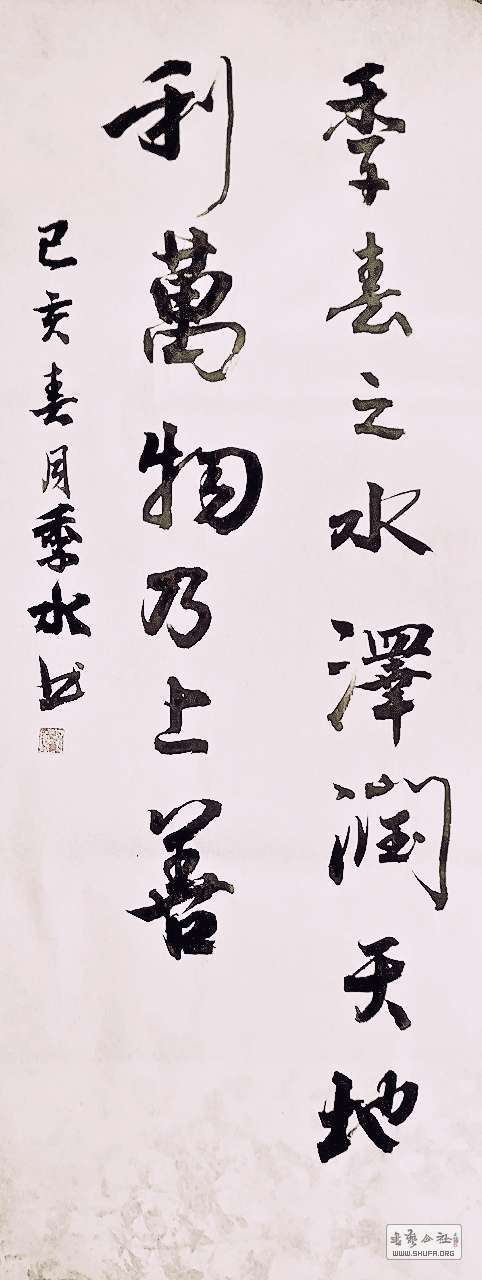 季春之水澤潤天地
利萬物乃上善
己亥春月季水書
書藝公社
WWW.SHUFA.ORG